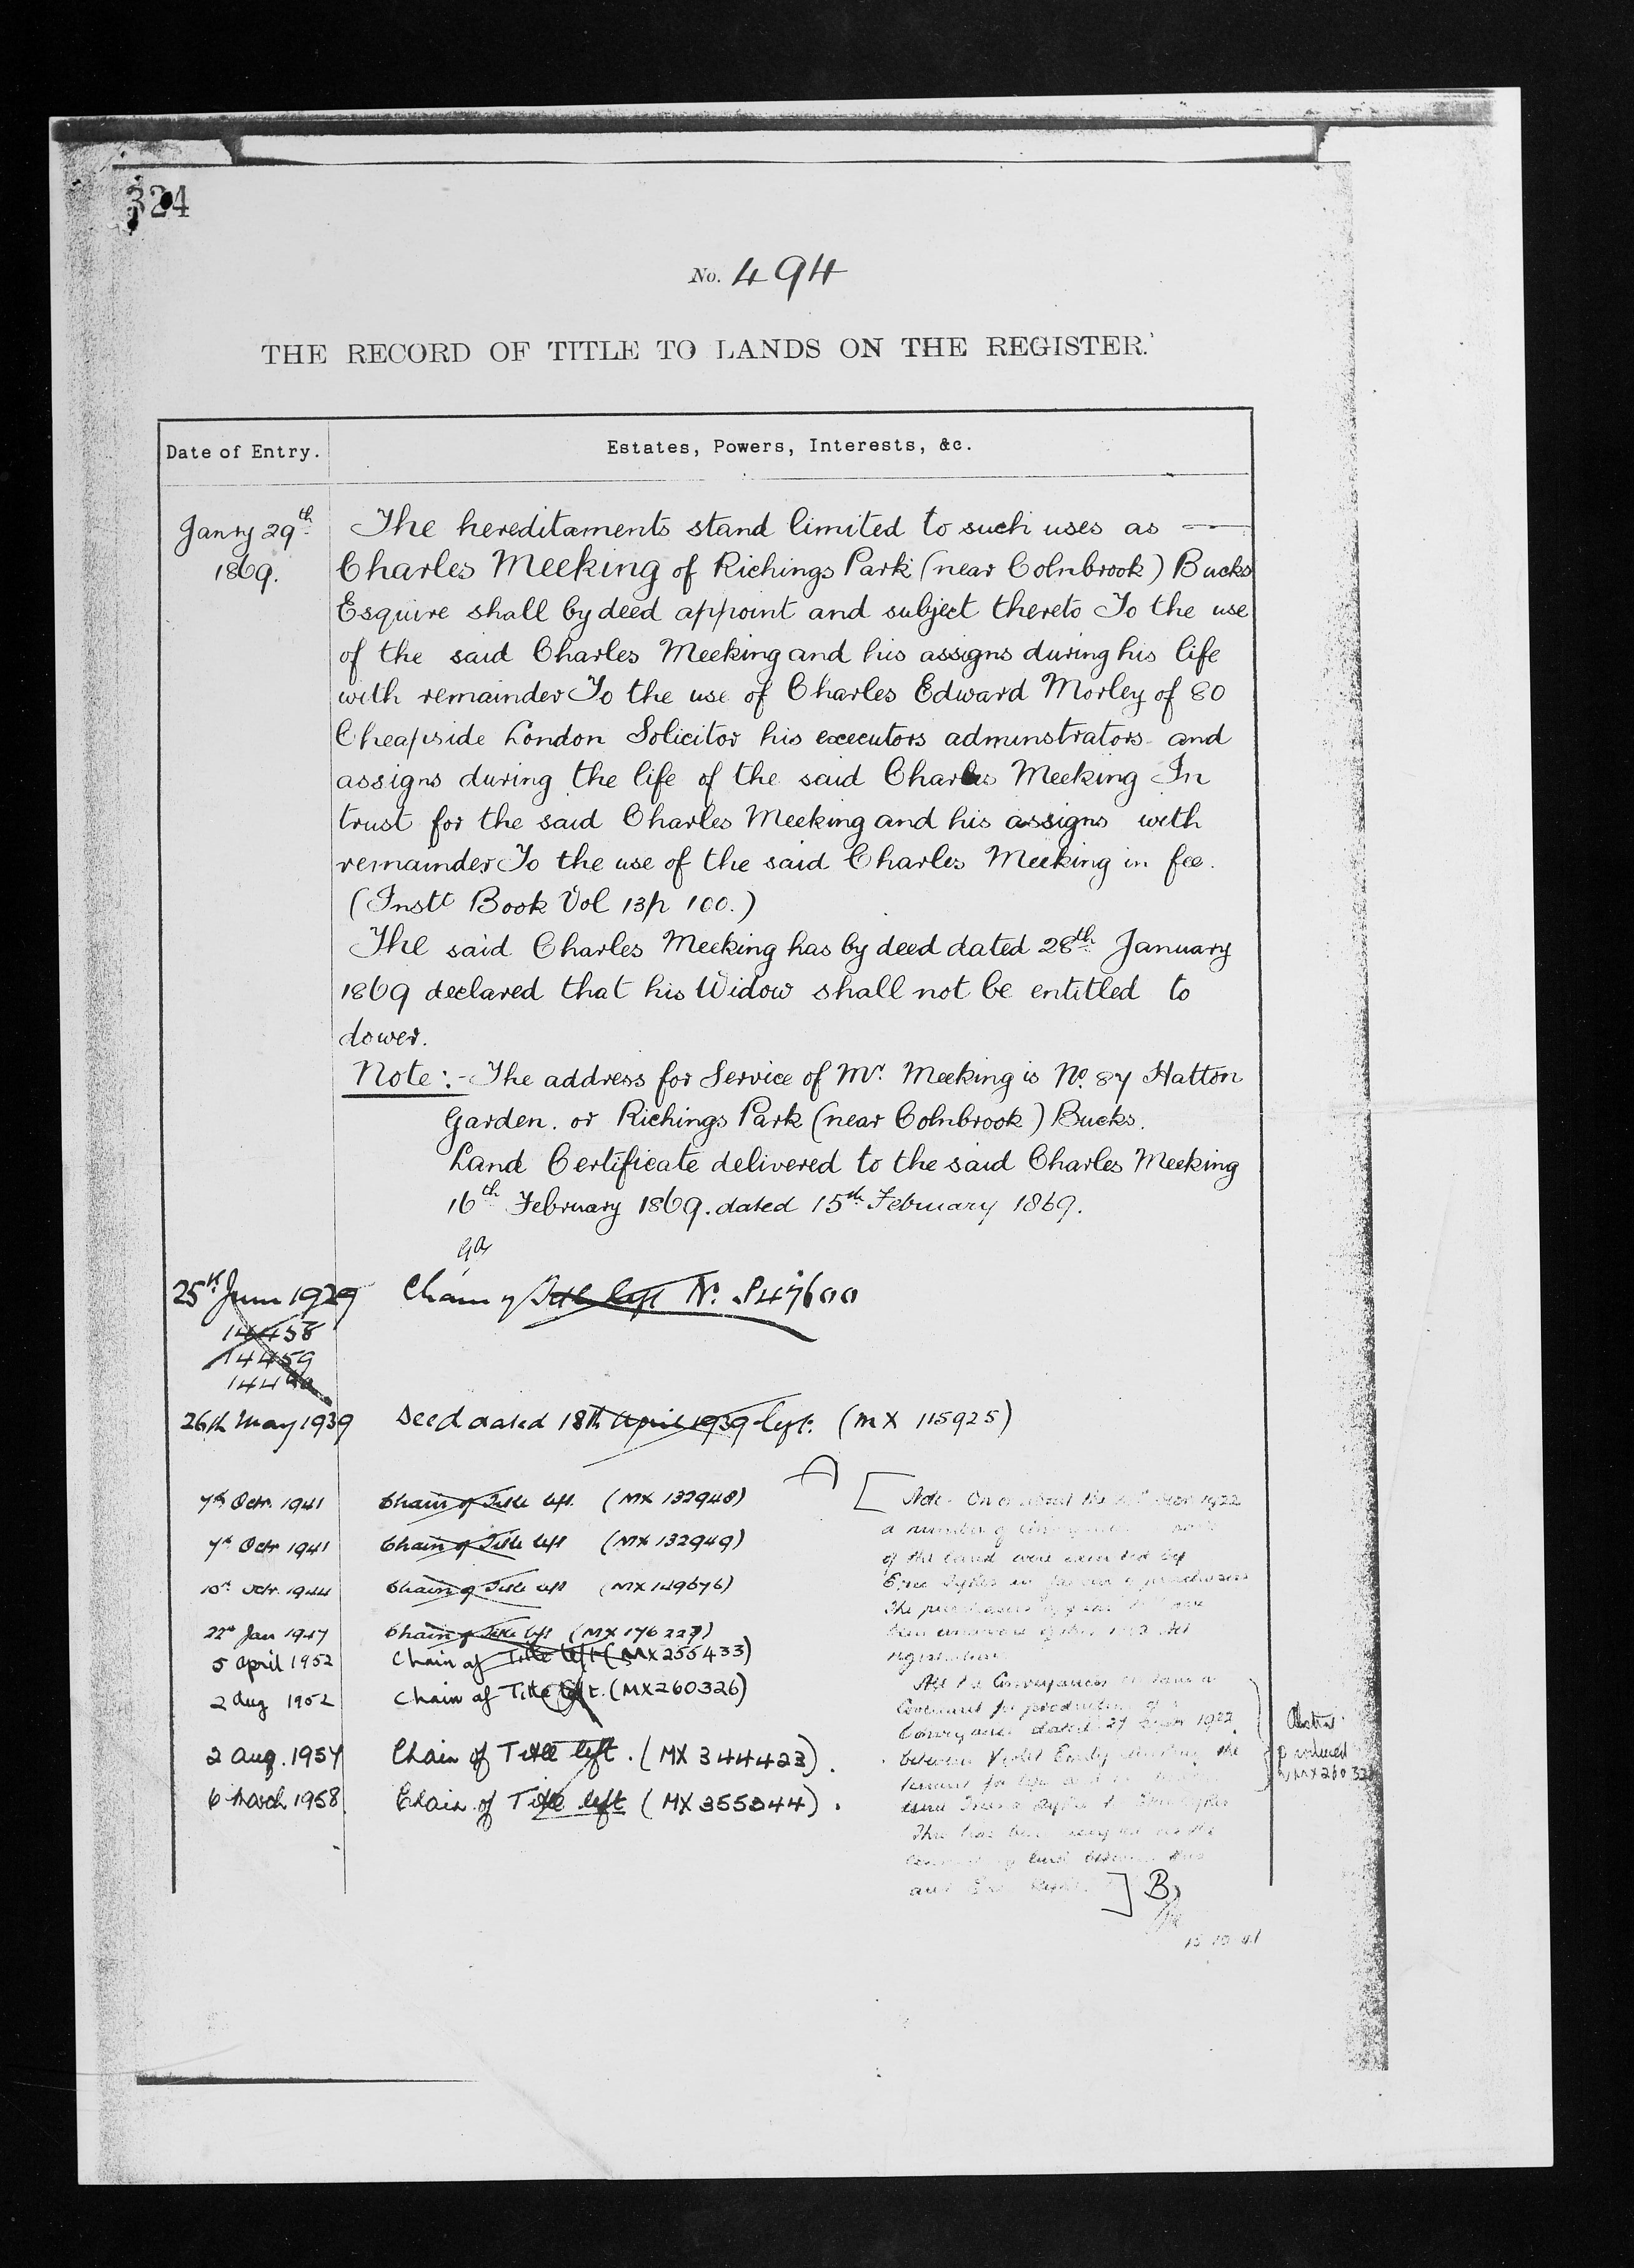 324
No. 494
THE RECORD OF TITLE TO LANDS ON THE REGISTER.
Date of Entry.
Estates, Powers, Interests, &c.
Janry 29th
1869.
The hereditaments stand limited to such uses as
Charles Meeking of Richings Park (near Colnbrook) Bucks
Esquire shall by deed appoint and subject thereto To the use
of the said Charles Meeking and his assigns during his life
with remainder To the use of Charles Edward Morley of 80
Cheapside London Solicitor his executors adminstrators and
assigns during the life of the said Charles Meeking In
trust for the said Charles Meeking and his assigns with
remainder To the use of the said Charles Meeking in fee.
(Instt Book Vol 13 p 100.)
The said Charles Meeking has by deed dated 28th January
1869 declared that his Widow shall not be entitled to
dower.
Note:- The address for Service of Mr. Meeking is No. 87 Hatton
Garden. or Richings Park (near Colnbrook) Bucks.
Land Certificate delivered to the said Charles Meeking
16th February 1869. dated 15th February 1869.
25th June 1929 Chain of Title left No. P47600
14458
14459
26th May 1939 Deed dated 18th April 1939 left. (MX 115925)
7th Octr. 1941 Chain of Title left. (MX 132948)
7th Octr 1941 Chain of Title left (MX 132949)
10th Octr. 1944 Chain of Title left (MX 149676)
22nd Jan 1947 Chain of Title left (MX 176227)
5 April 1952 Chain of Title left (MX255433)
2 Aug 1952 Chain of Title left. (MX260326)
2 Aug. 1957 Chain of Title left. (MX 344423).
6 March 1958 Chain of Title left (MX 355344).
A
Note. On or about the 1922
a number of
of the land were executed by
Eric Sykes in favour of purchasers
The purchasers
registration
All the Conveyances contain a
Covenant for production of a
Conveyance dated 27 1922
between Violet Emily Meeking the
tenant for life
This has been
and
] B
Abstract
produced
MX260326
15 10 41